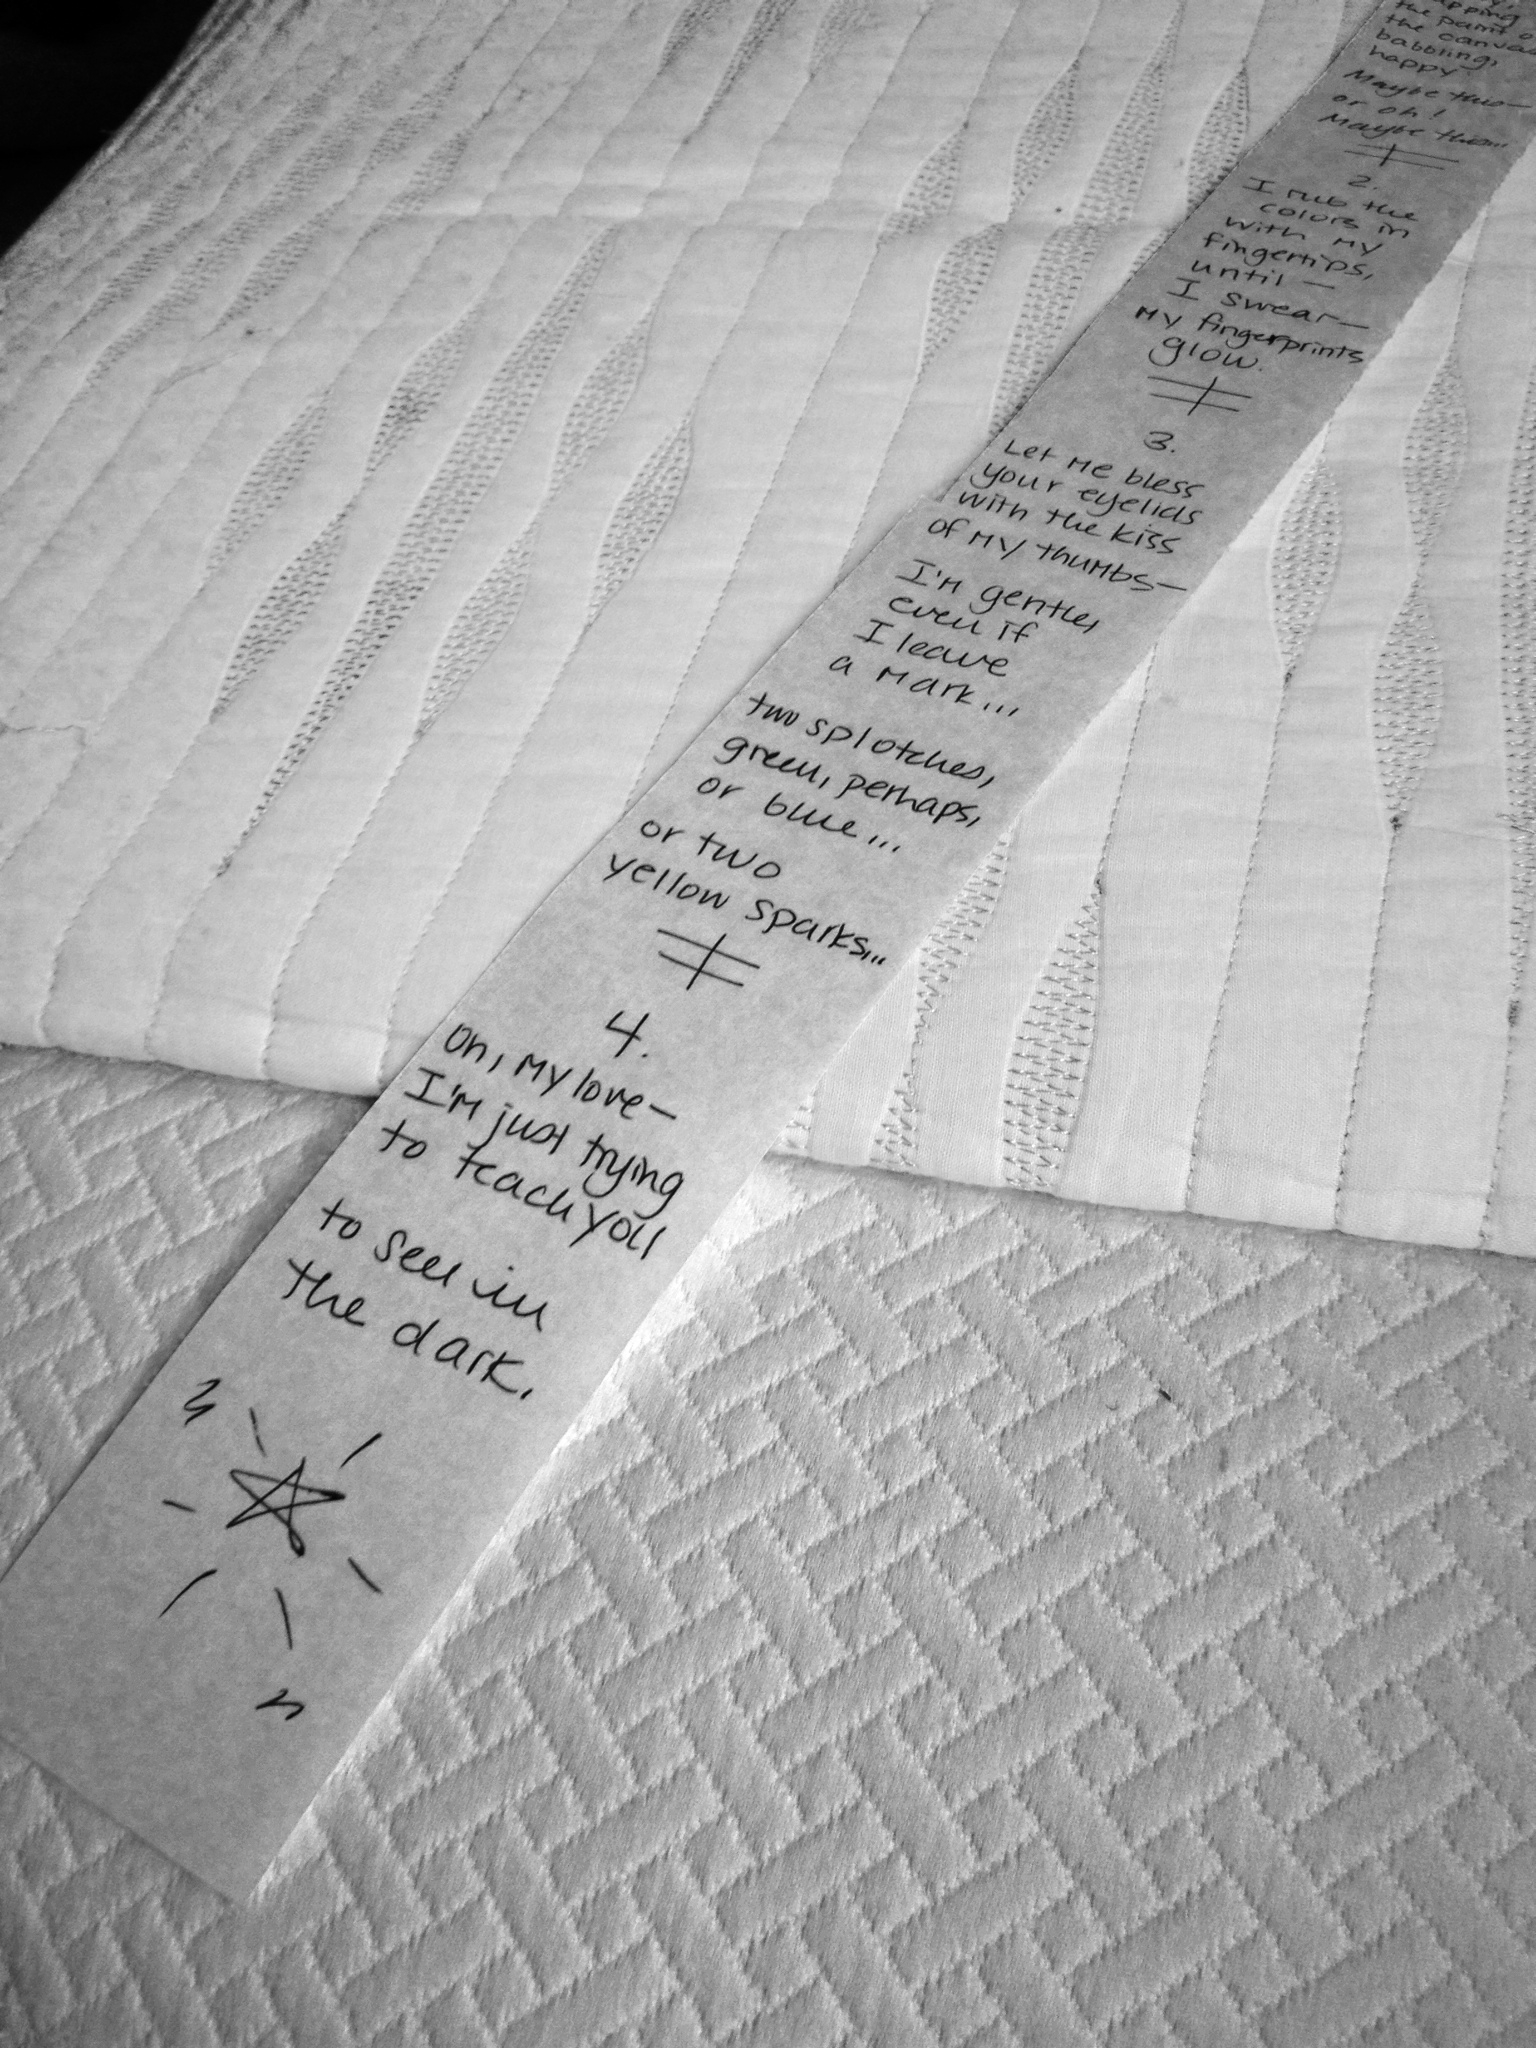 the paint
the canvas
babbling,
happy
Maybe two—
or oh!
Maybe
2.
I rub the
colors in
with my
fingertips,
until—
I swear—
my fingerprints
glow.
3.
Let me bless
your eyelids
with the kiss
of my thumbs—
I'm gentle,
even if
I leave
a mark...
two splotches,
green, perhaps,
or blue...
or two
yellow sparks...
4.
Oh, my love—
I'm just trying
to teach you
to see in
the dark.